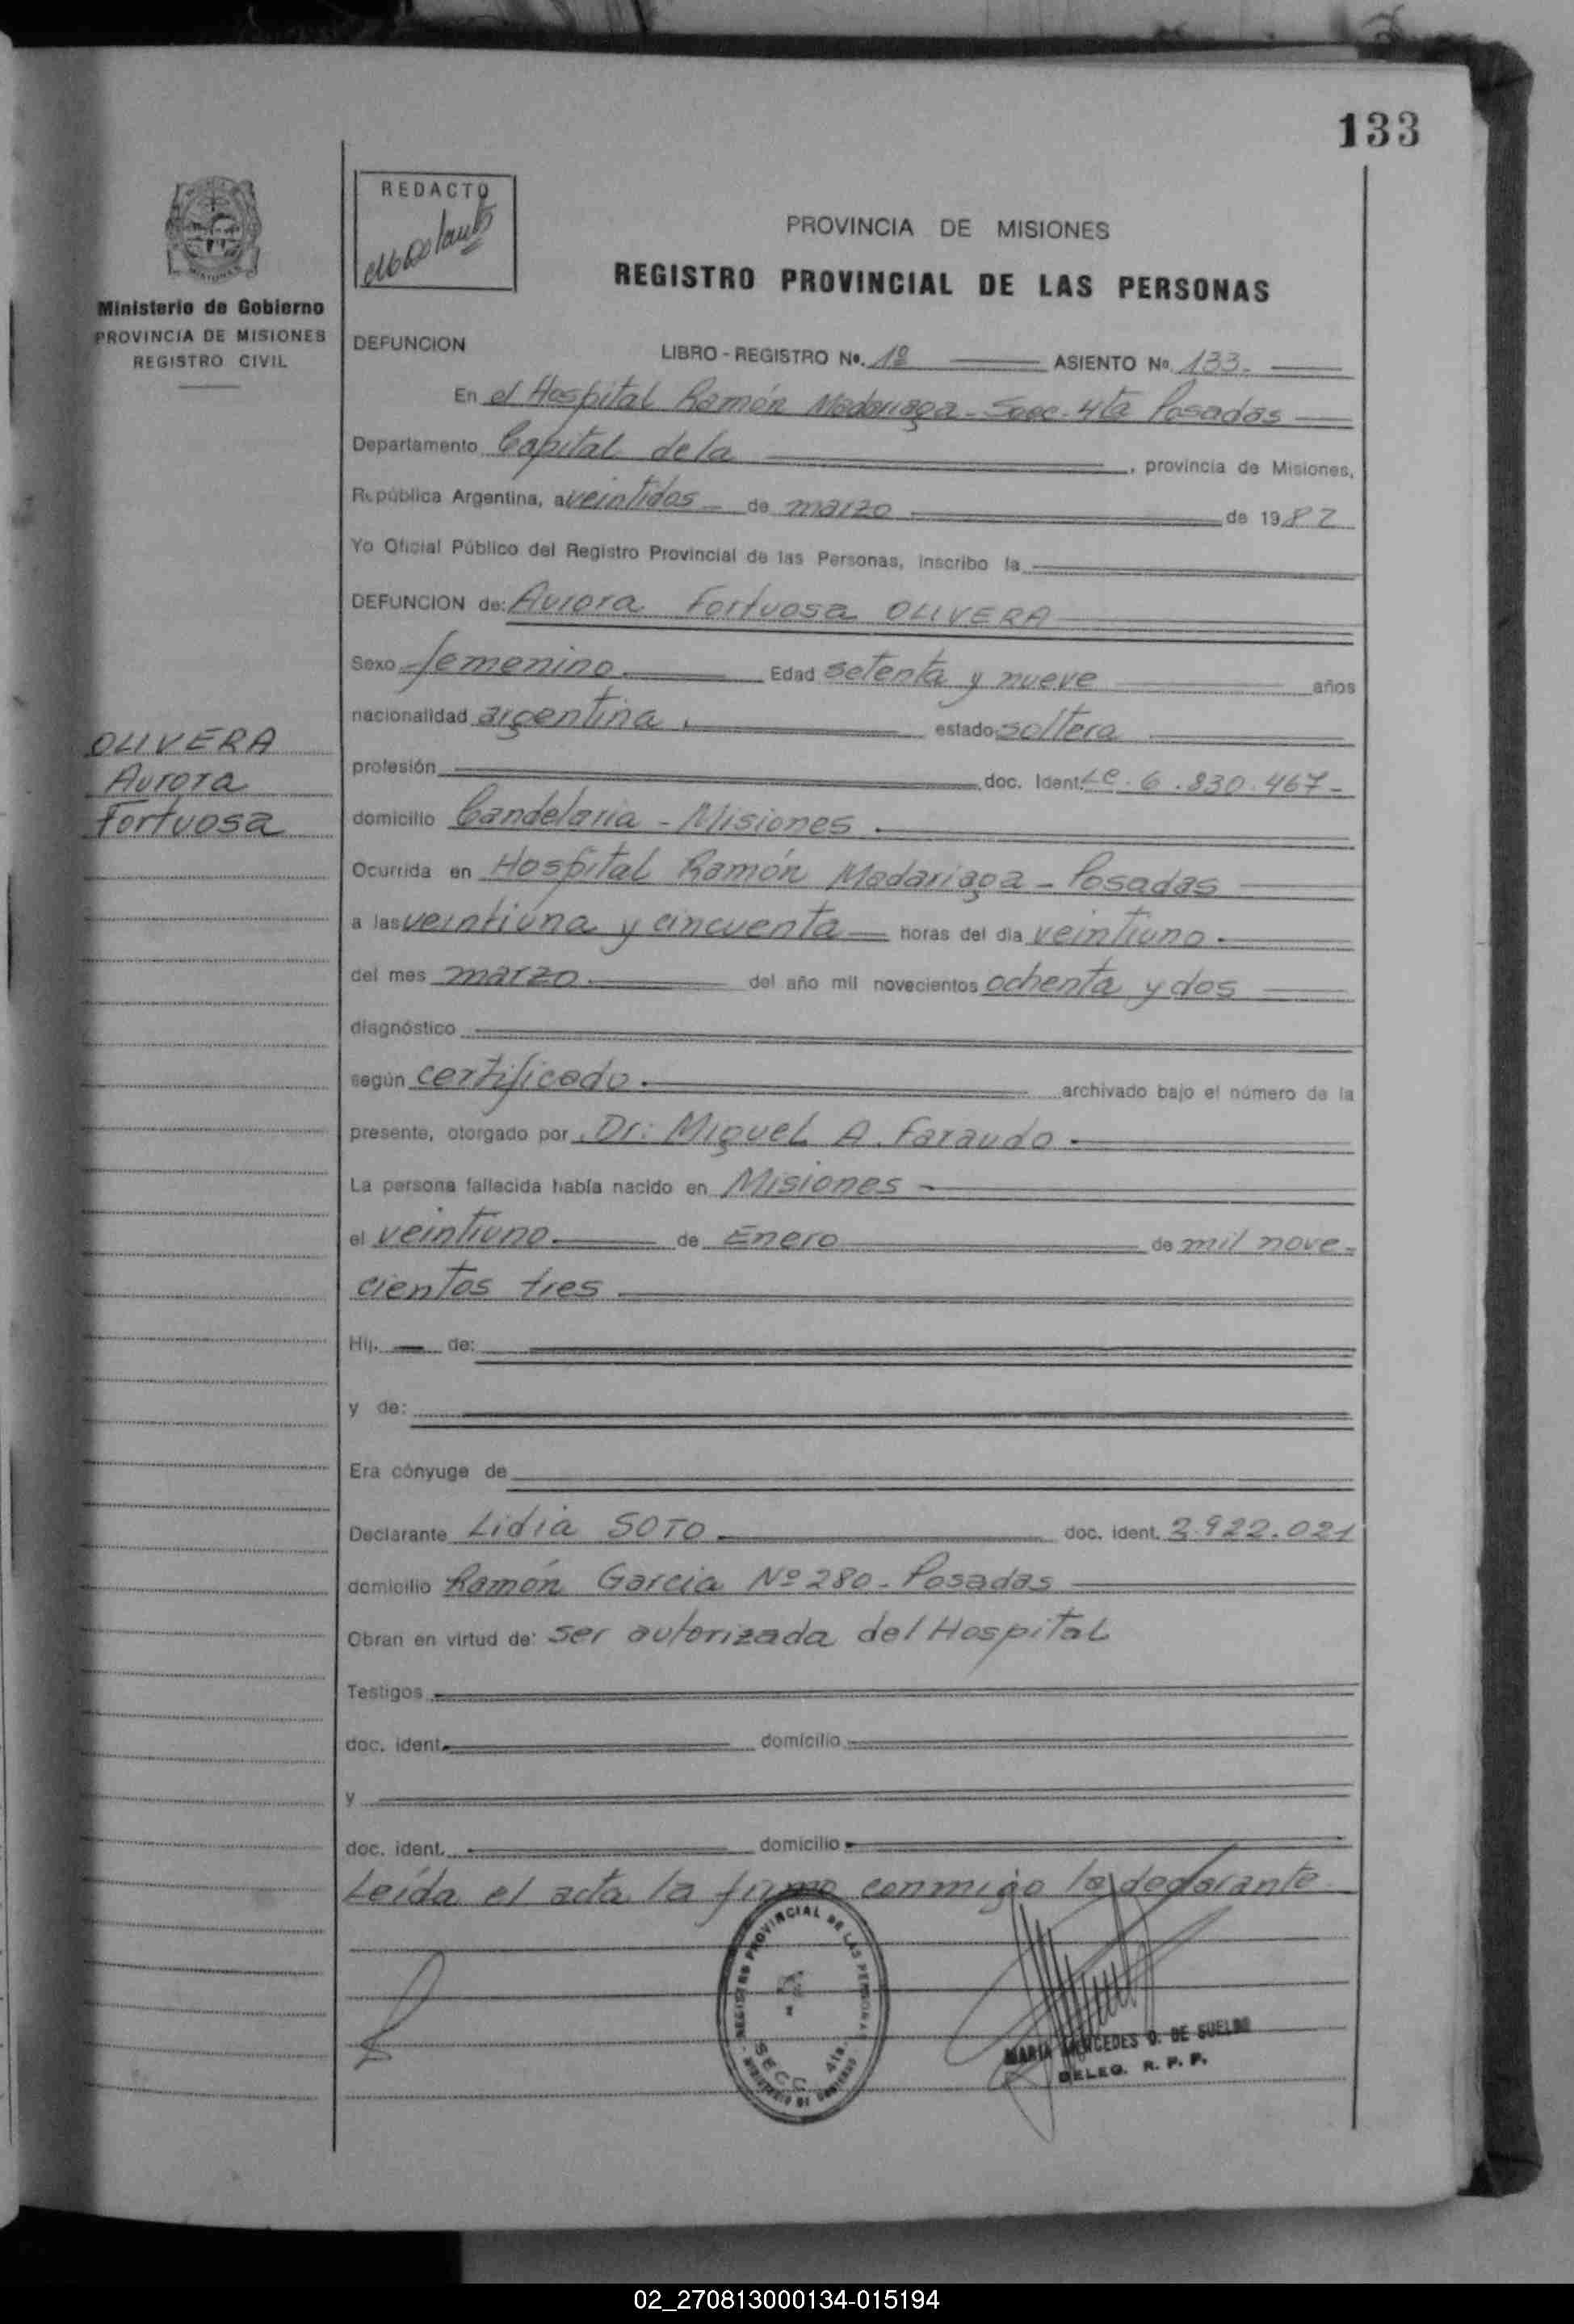 133
REDACTO
PROVINCIA DE MISIONES
REGISTRO PROVINCIAL DE LAS PERSONAS
Ministerio de Gobierno
PROVINCIA DE MISIONES
REGISTRO CIVIL
DEFUNCION LIBRO - REGISTRO No. 1º ASIENTO No. 133.
En el Hospital Ramón Madariaga - Secc. 4ta Posadas
Departamento Capital de la , provincia de Misiones,
República Argentina, a veintidos de marzo de 1982
Yo Oficial Público del Registro Provincial de las Personas, inscribo la
DEFUNCION de: Aurora Fortuosa OLIVERA
Sexo femenino Edad setenta y nueve años
nacionalidad argentina. estado soltera
OLIVERA
Aurora
Fortuosa
profesión doc. Ident. Lc. 6.830.467-
domicilio Candelaria - Misiones.
Ocurrida en Hospital Ramón Madariaga - Posadas
a las veintiuna y cincuenta horas del día veintiuno.
del mes marzo. del año mil novecientos ochenta y dos
diagnóstico
según certificado. archivado bajo el número de la
presente, otorgado por Dr: Miguel A. Faraudo.
La persona fallecida había nacido en Misiones -
el veintiuno de Enero de mil nove-
cientos tres
Hij. de:
y de:
Era cónyuge de
Declarante Lidia SOTO doc. ident. 3.922.021
domicilio Ramón Garcia Nº 280 - Posadas
Obran en virtud de: ser autorizada del Hospital
Testigos
doc. ident. domicilio
y
doc. ident. domicilio
Leída el acta la firma conmigo la declarante.
REGISTRO PROVINCIAL DE LAS PERSONAS
SECC. 4ta.
MINISTERIO DE GOBIERNO
MARIA MERCEDES O. DE SUELDO
DELEG. R. P. P.
02_270813000134-015194